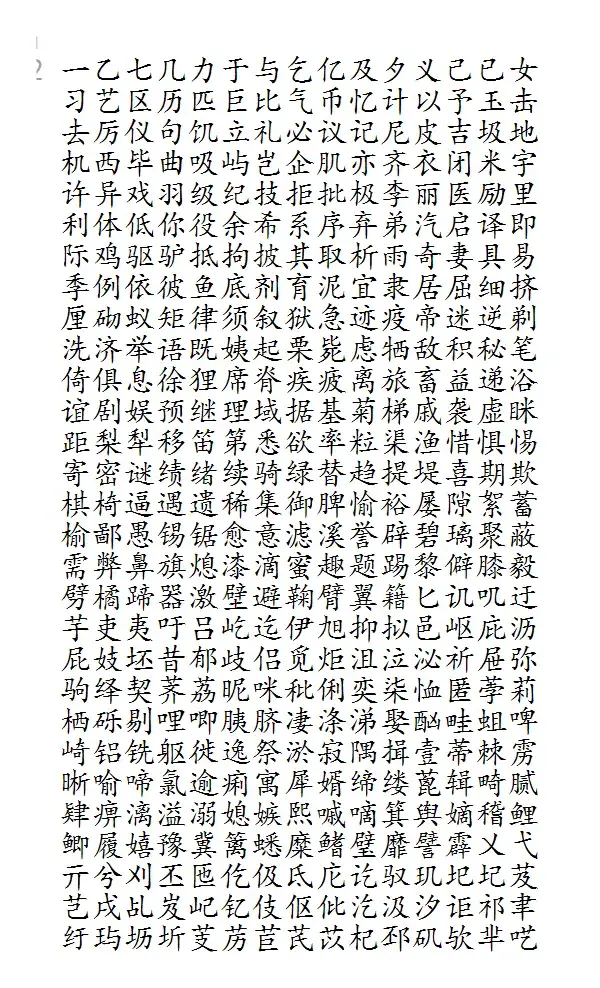 2
一乙七几力于与乞亿及夕义己已女
习艺区历匹巨比气币忆计以予玉击
去厉仪句饥立礼必议记尼皮吉圾地
机西毕曲吸屿岂企肌亦齐衣闭米宇
许异戏羽级纪技拒批极李丽医励里
利体低你役余希系序弃弟汽启译即
际鸡驱驴抵拘披其取析雨奇妻具易
季例依彼鱼底剂育泥宜隶居屈细挤
厘砌蚁矩律须叙狱急迹疫帝迷逆剃
洗济举语既姨起栗毙虑牺敌积秘笔
倚俱息徐狸席脊疾疲离旅畜益递浴
谊剧娱预继理域据基菊梯戚袭虚眯
距梨犁移笛第悉欲率粒渠渔惜惧惕
寄密谜绩绪续骑绿替趋提堤喜期欺
棋椅逼遇遗稀集御脾愉裕屡隙絮蓄
榆鄙愚锡锯愈意滤溪誉辟碧璃聚蔽
需弊鼻旗熄漆滴蜜趣题踢黎僻膝毅
劈橘蹄器激壁避鞠臂翼籍匕讥叽迂
芋吏夷吁吕屹迄伊旭抑拟邑岖庇沥
屁妓坯昔郁歧侣觅炬沮泣泌祈屉弥
驹绎契荠荔昵咪秕俐奕柒恤匿荸莉
栖砾剔哩唧胰脐凄涤涕娶酗畦蛆啤
崎铝铣躯徙逸祭淤寂隅揖壹蒂棘雳
晰喻啼氯逾痢寓犀婿缔缕蓖辑畸腻
肆痹漓溢溺媳嫉熙嘁嘀箕舆嫡稽鲤
鲫履嬉豫冀篱蟋糜鳍璧靡譬霹乂弋
亓兮刈丕匜仡伋氐庀讫驭玑圮圯芨
芑戌乩岌屺钇伎伛仳汔汲汐讵祁聿
纡玙坜圻芰苈苣芪苡杞邳矶欤芈呓